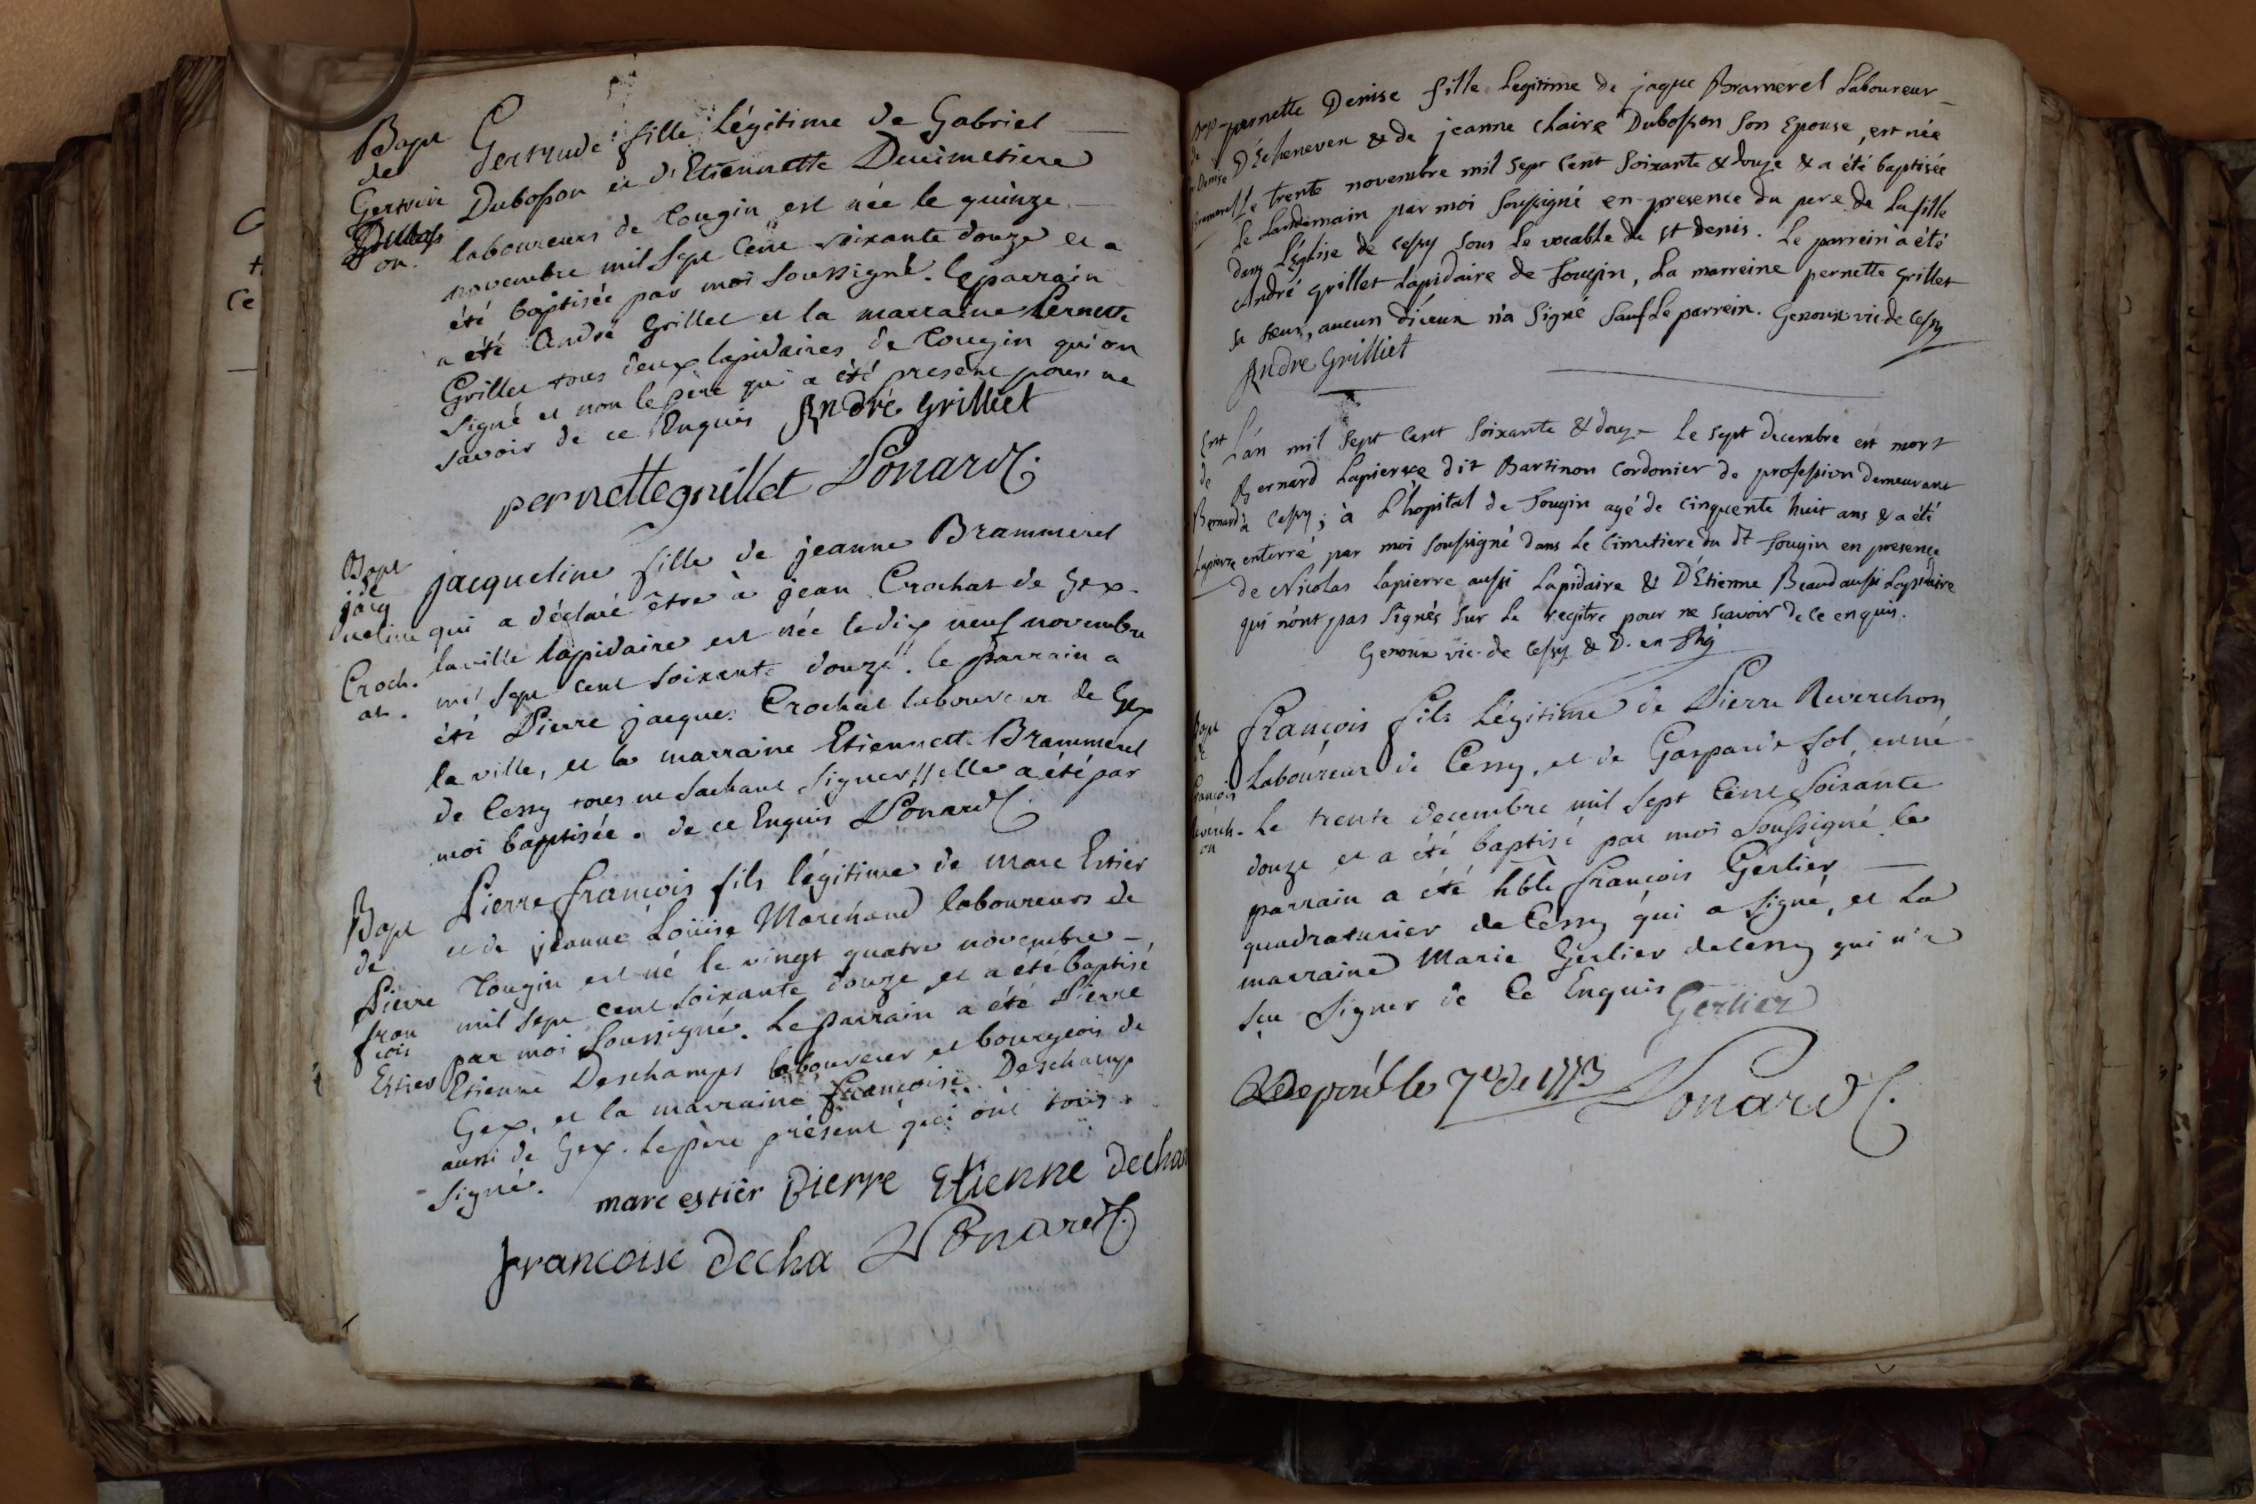 Bapt
de
Gertrude
Dubosson
Gertrude fille Légitime de Gabriel
Dubosson et d'Etiennette Ducimetiere
laboureurs de Tougin est née le quinze
novembre mil sept cent soixante douze et a
été baptisée par moi soussigné. le parrain
a été André Grillet et la marraine Pernette
Grillet tous deux lapidaires de Tougin qui on
signé et non le père qui a été present pour ne
savoir de ce Enquis André Grilliet
pernette grillet Ponard C.
Bapt
de
jacq
ueline
Croch.
at.
jacqueline fille de jeanne Brammerel
qui a déclaré être à jean Crochat de Gex
la ville lapidaire est née le dix neuf novembre
mil sept cent soixante douze. le parrain a
été Pierre jacques Crochat laboureur de Gex
la ville, et la marraine Etiennette Brammerel
de Cessy tous ne sachant signer // elle a été par
moi baptisée. de ce Enquis Ponard C.
Bapt
de
Pierre
fran
çois
Estier
Pierre françois fils légitime de marc Estier
et de jeanne Loüise Marchand laboureurs de
Tougin est né le vingt quatre novembre
mil sept cent soixante douze et a été baptisé
par moi soussigné. Le parrain a été Pierre
Etienne Deschamps laboureur et bourgeois de
Gex, et la marraine françoise Deschamp
aussi de Gex. Le père présent qui ont tous
signé.
marc estier Pierre Etienne decha
francoise decha Ponard C.
Bapt
de
Denise
Bramerel
pernette Denise fille Legitime de jaque Bramerel Laboureur
D'Echeneven & de jeanne Claire Dubosson son Epouse, est née
Le trente novembre mil sept cent soixante & douze & a été baptisée
Le Landemain par moi soussigné en presence du pere de La fille
dans L'Eglise de Cessy sous Le vocable de st denis. Le parrein a été
André grillet Lapidaire de Tougin, La marreine pernette grillet
sa sœur, aucun d'iceux n'a signé sauf Le parrein. Genoux vic. de Cessy
André Grilliet
de
Bernard
Lapierre
L'an mil sept cent soixante & douze Le sept decembre est mort
Bernard Lapierre dit Bartinon Cordonier de profession demeurant
à Cessy; à L'hopital de Tougin agé de Cinquente huit ans & a été
enterré par moi soussigné dans Le Cimetiere du dt Tougin en presence
de Nicolas Lapierre aussi Lapidaire & D'Etienne Beaud aussi Lapidaire
qui n'ont pas signés sur Le regitre pour ne scavoir de ce enquis.
Genoux vic. de Cessy & D. en Thg
Bapt
de
françois
Reverch-
on
françois fils Légitime de Pierre Reverchon
Laboureur de Cessy, et de Gasparde fol, est né
Le trente decembre mil sept cent soixante
douze et a été baptisé par moi soussigné le
parrain a été hble françois Gerlier
quadraturier de Cessy qui a signé, et La
marraine Marie Gerlier de Cessy qui n'a
sçu signer de Ce Enquis Gerlier
le 7e de 1773 Ponard C.